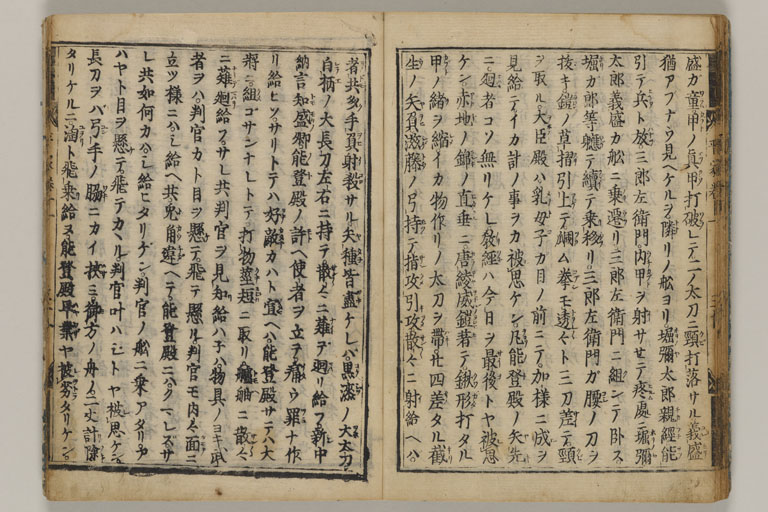 盛カ童甲ノ真甲打破レテ二ノ太刀ニ頸打落サル義盛
猶アフナウ見ヘケルヲ隣リノ舩ヨリ堀彌太郎親經能
引テ兵ト放三郎左衛門内甲ヲ射サセテ疼處ニ堀彌
太郎義盛カ舩ニ乗遷リ三郎左衛門ニ組ンテ臥ス
堀カ郎等軈テ續テ来移リ三郎左衛門ガ腰ノ刀ヲ
抜キ鎧ノ草摺引上テ欛ム拳モ透レト三刀差テ頸
ヲ取ル大臣殿ハ乳母子カ目ノ前ニテ加様ニ成ヲ
見給テイカ計ノ事ヲカ被思ケン凡能登殿ノ矢先
ニ廻者コソ無リケレ教經ハ今日ヲ最後トヤ被思
ケン赤地ノ錦ノ直垂ニ唐綾威鎧著テ鍬形打タル
甲ノ緒ヲ縮イカ物作リノ太刀ヲ帶廿四差タル截
生ノ矢負滋藤ノ弓持テ指攻引攻散々ニ射給ヘハ
者共多手負射殺サル矢種皆盡ケレバ黒漆ノ大太刀
白柄ノ大長刀左右ニ持テ散々ニ薙テ廻リ給フ新中
納言知盛卿能登殿ノ許ヘ使者ヲ立テ痛ウ罪ナ作
リ給ヒソサリトテハ好敵カハト宣ヘハ能登殿サテハ大
将ニ組ゴサンナレトテ打物莖短ニ取リ艫舳ニ散々
ニ薙廻給フサレ共判官ヲ見知給ハ子ハ物具ノヨキ武
者ヲハ判官カト目ヲ懸テ飛テ懸ル判官モ内々面ニ
立ツ様ニハシ給ヘ共兎角違ヘテ能登殿ニハクマレスサ
レ共如何カハシ給ヒタリケン判官ノ舩ニ乗アタリア
ハヤト目ヲ懸テ飛テカヽル判官叶ハシトヤ被思ケン
長刀ヲバ弓手ノ脇ニカイ挾ミ御方ノ舟ノ二丈計隙
タリケルニ涌ト飛乗給ヌ能登殿早業ヤ被劣タリケン